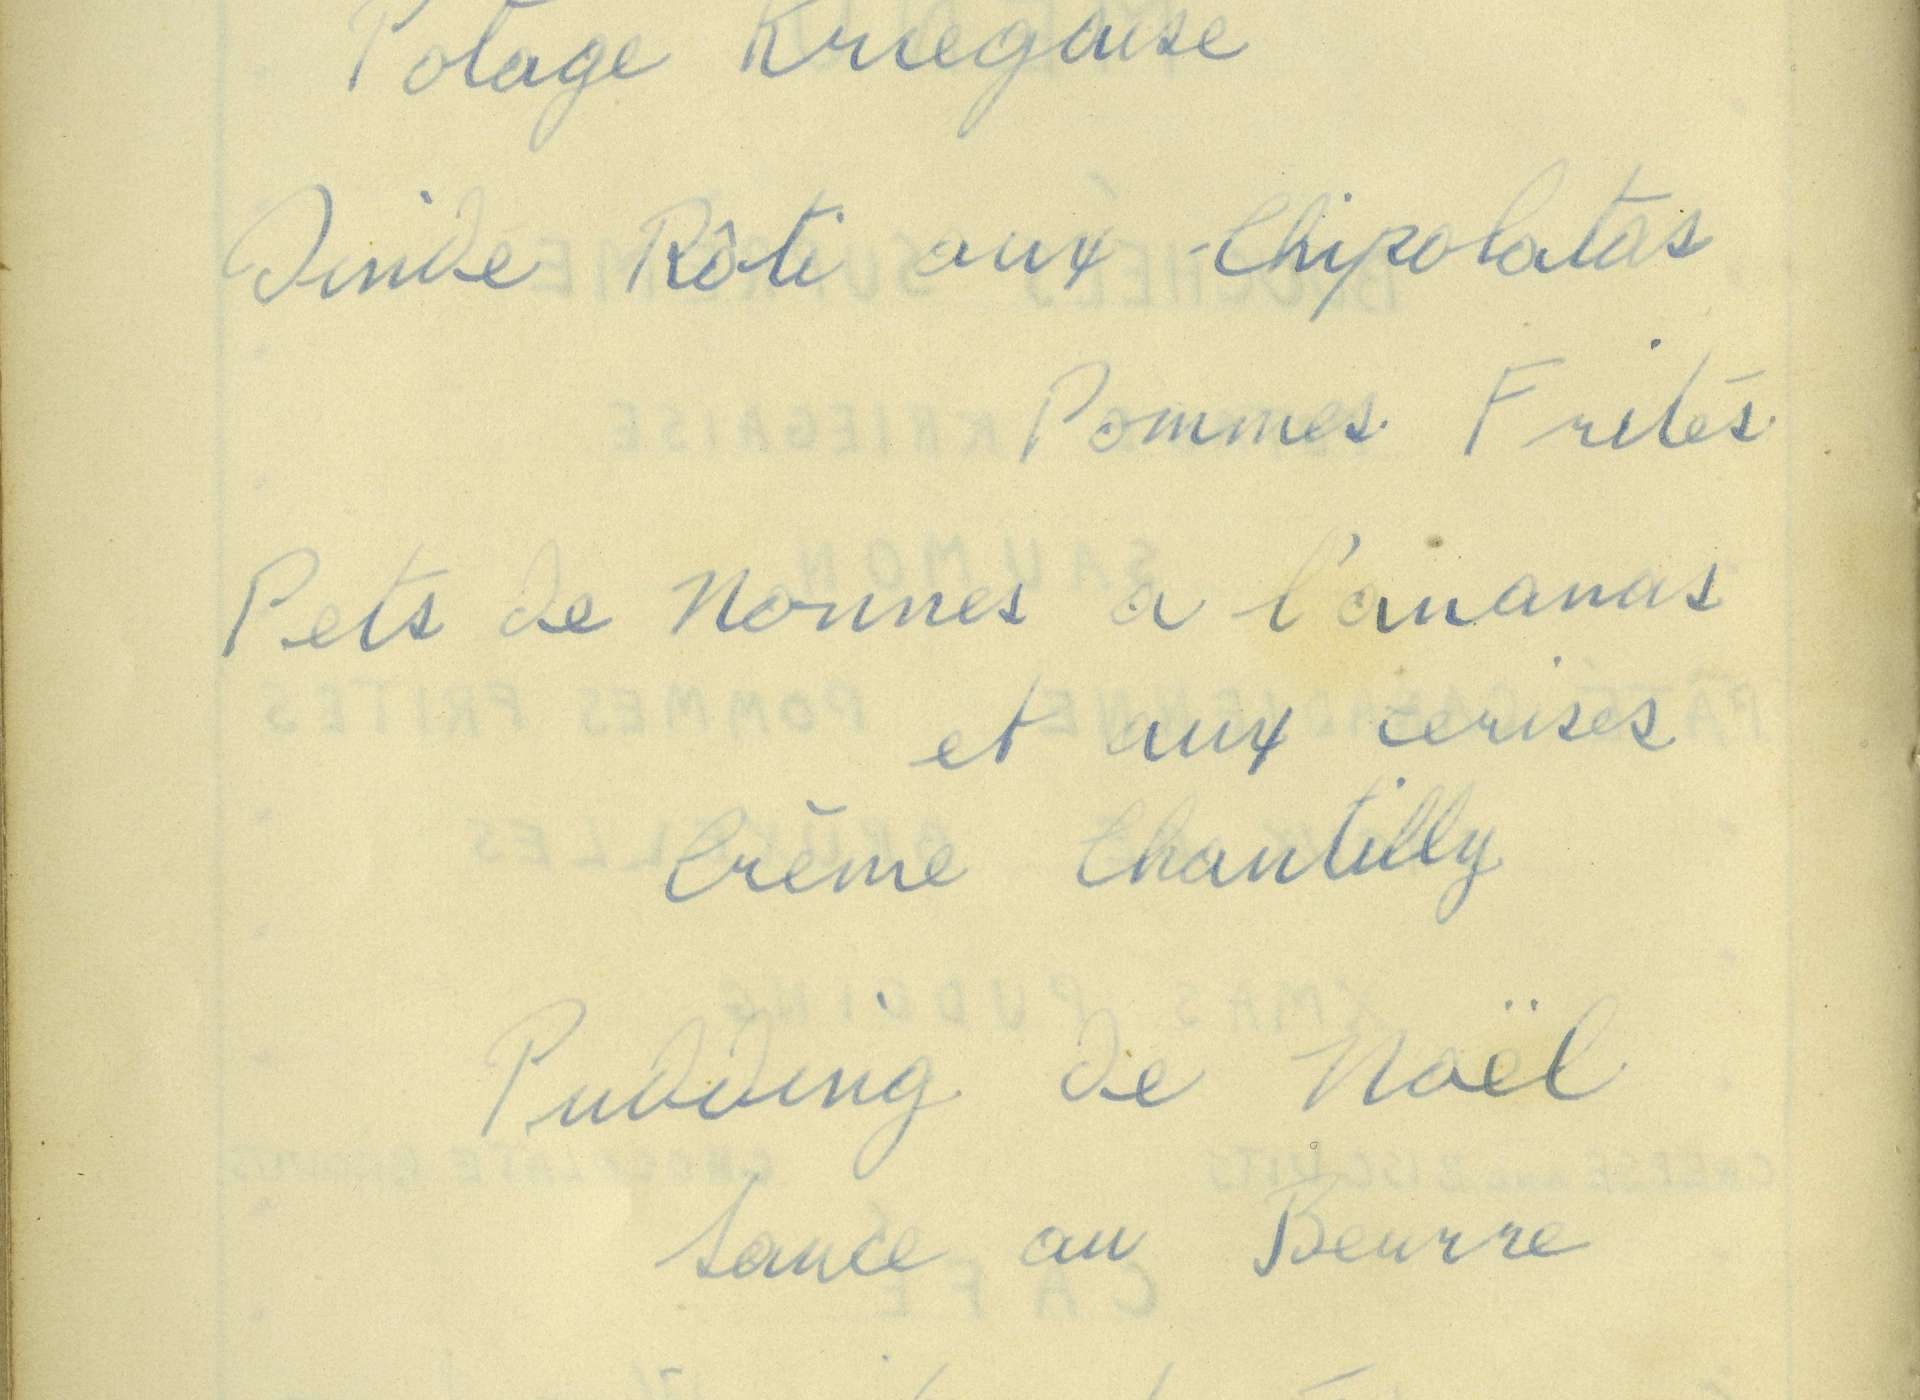 Potage Kriegaise
Dinde Rôti aux Chipolatas
Pommes Frites
Pets de Nonnes a l'ananas
et aux cerises
Crème Chantilly
Pudding de Noël
Sauce au Beurre